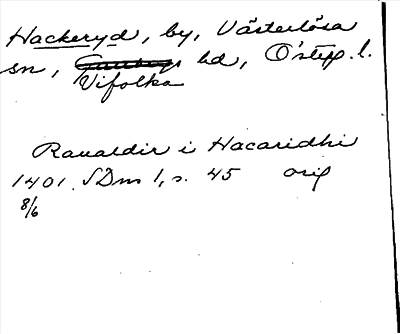 Hackeryd, by, Västerlösa
sn, hd, Östg. l.
Vifolka
Ranaldir i Hacaridhi
1401 SDns 1, s. 45 orig
8/6